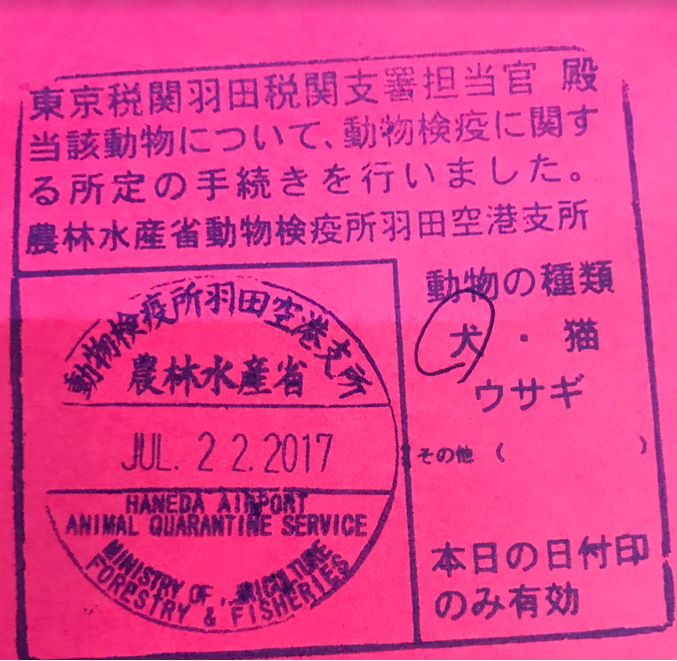 東京税関羽田税関支署担当官 殿
当該動物について、動物検疫に関す
る所定の手続きを行いました。
農林水産省動物検疫所羽田空港支所
動物検疫所羽田空港支所
農林水産省
JUL. 22.2017
HANEDA AIRPORT
ANIMAL QUARANTINE SERVICE
MINISTRY OF
FORESTRY & FISHERIES
動物の種類
犬 ・ 猫
ウサギ
その他 ( )
本日の日付印
のみ有効